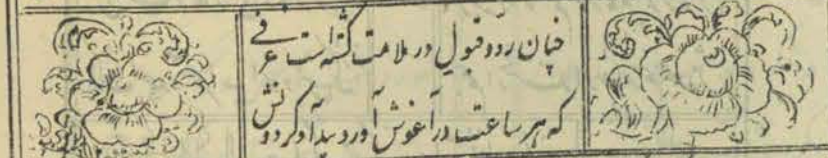 چنان ردو قبول در ملامت کشته است عرفی
که هر ساعت در آغوش آورد بیداد گردونش